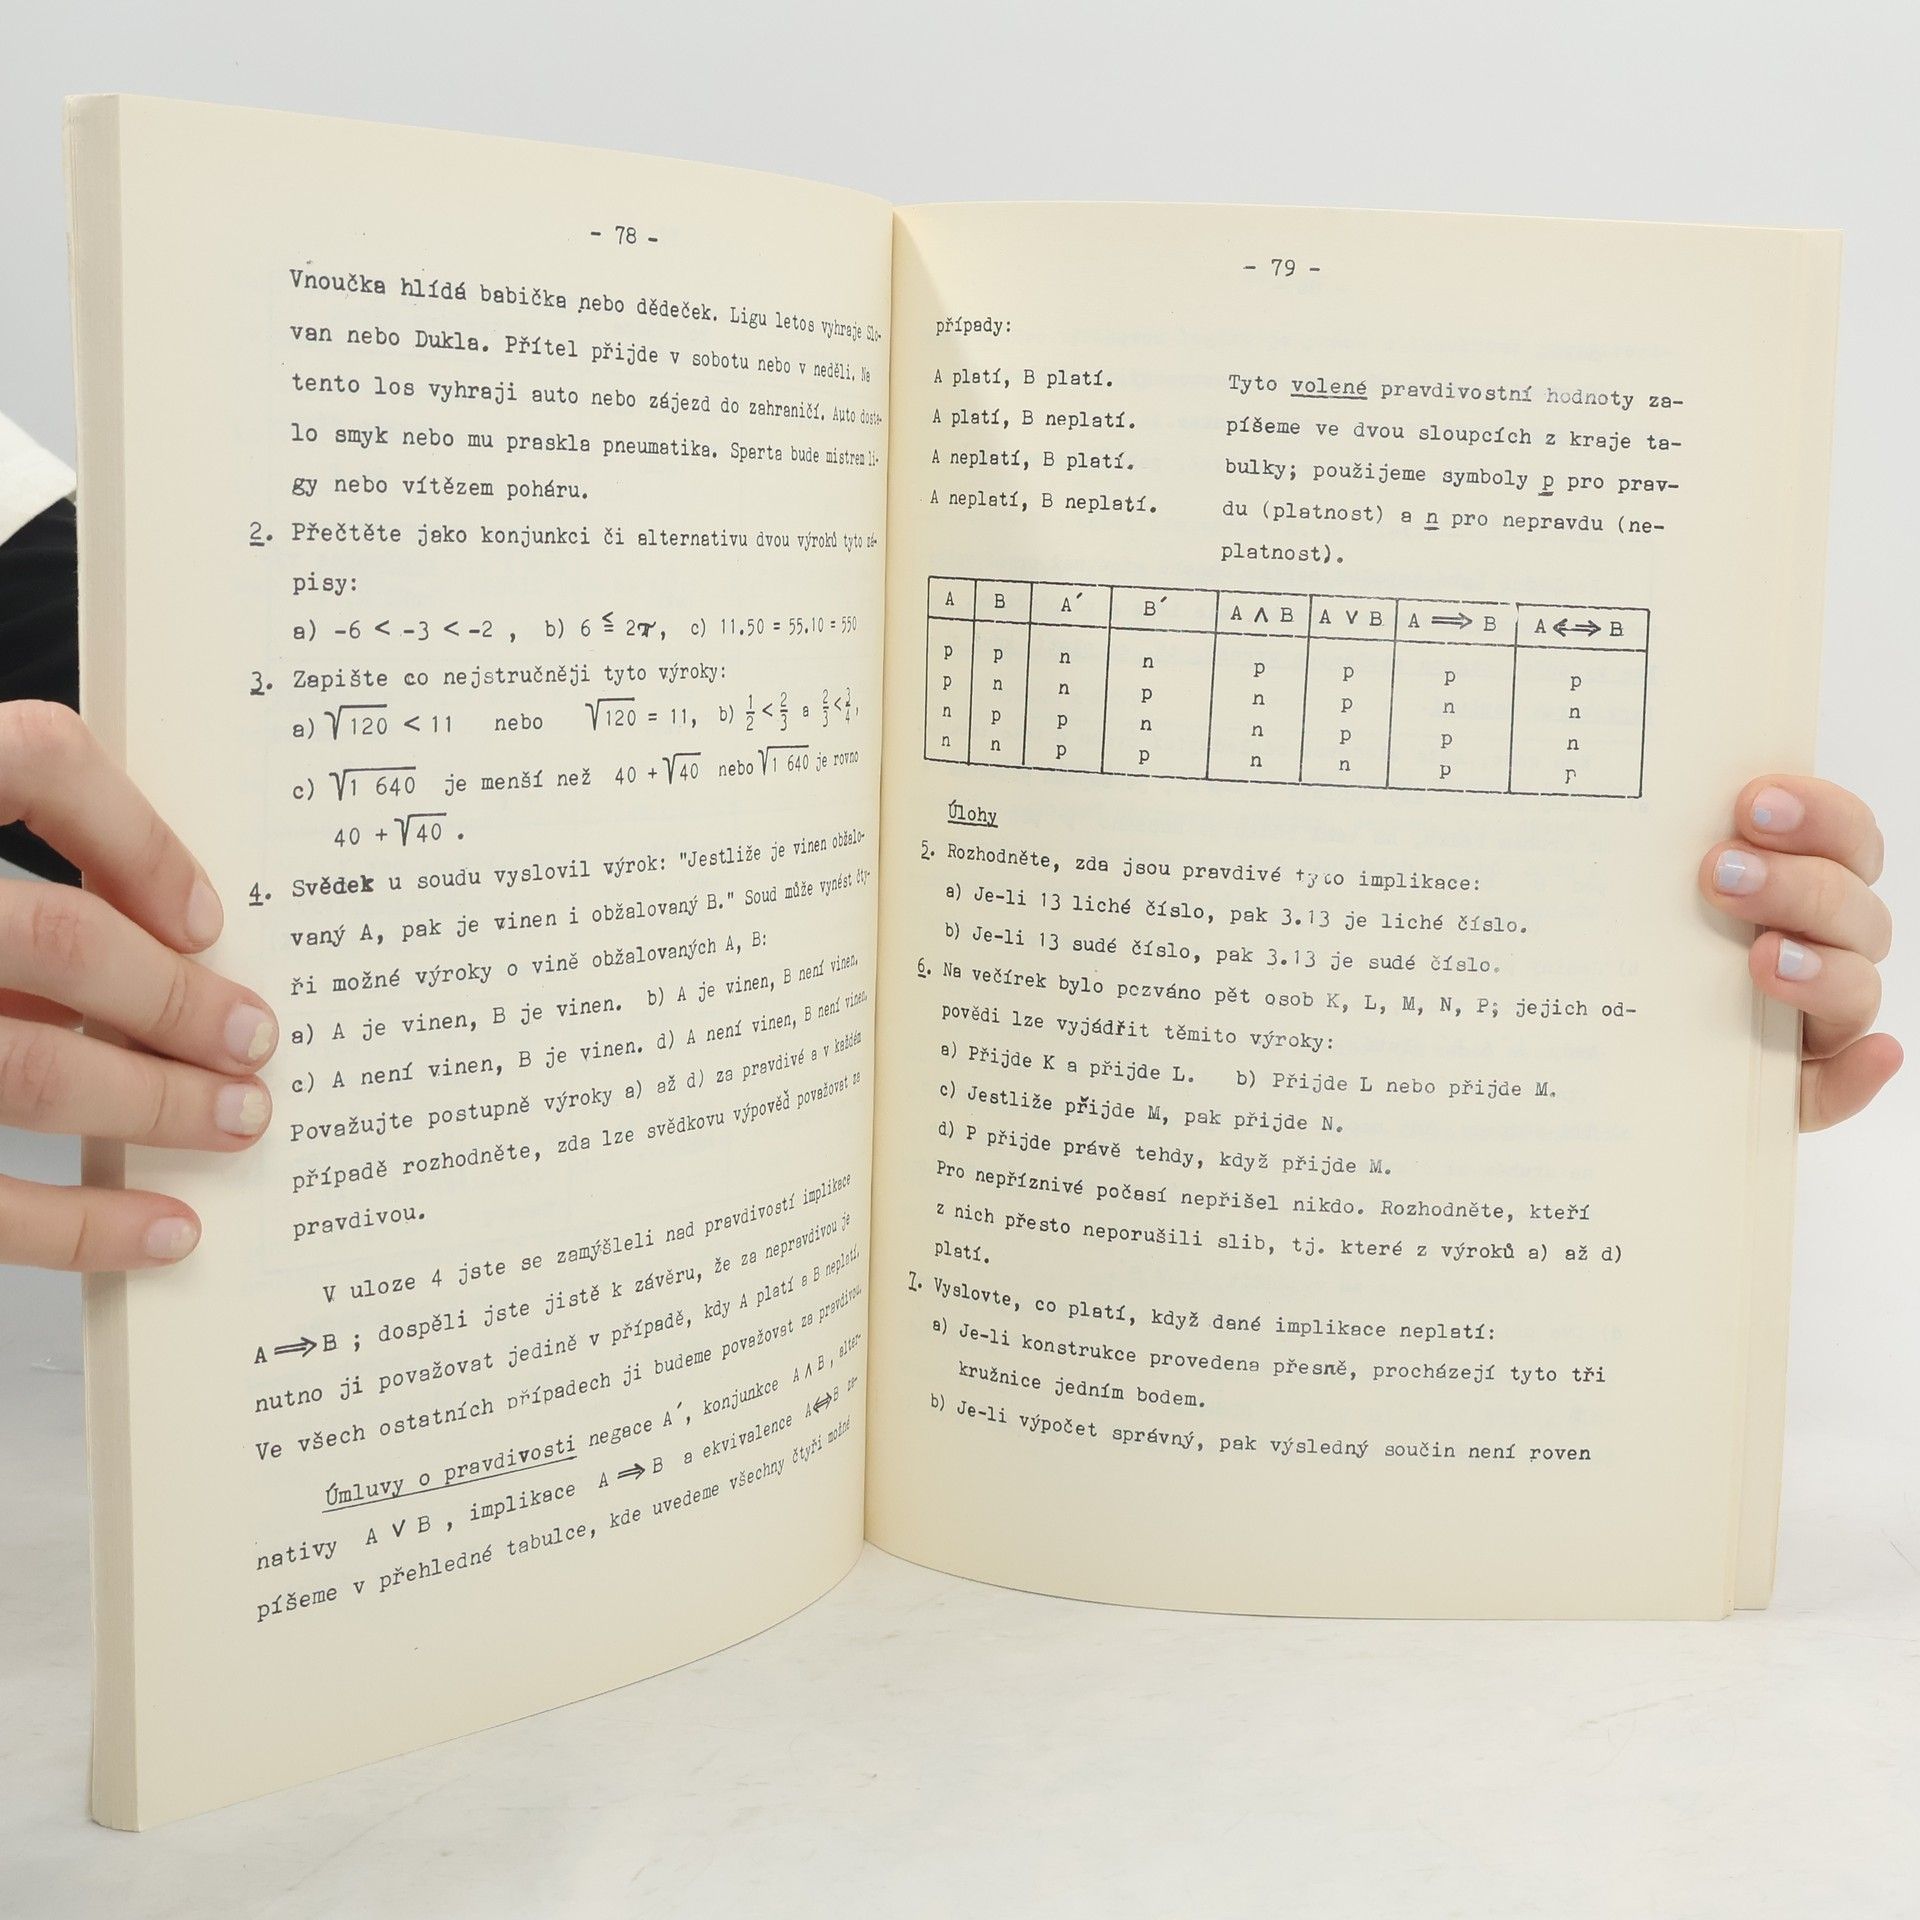 - 78 -
Vnoučka hlídá babička nebo dědeček. Ligu letos vyhraje Slo-
van nebo Dukla. Přítel přijde v sobotu nebo v neděli. Na
tento los vyhraji auto nebo zájezd do zahraničí. Auto dosta-
lo smyk nebo mu praskla pneumatika. Sparta bude mistrem li-
gy nebo vítězem poháru.
2. Přečtěte jako konjunkci či alternativu dvou výroků tyto zá-
pisy:
a) -6 < -3 < -2 , b) 6 ≦ 2π, c) 11.50 = 55.10 = 550
3. Zapište co nejstručněji tyto výroky:
a) √120 < 11 nebo √120 = 11, b) 1/2 < 2/3 a 2/3 < 3/4,
c) √1 640 je menší než 40 + √40 nebo √1 640 je rovno
40 + √40 .
4. Svědek u soudu vyslovil výrok: "Jestliže je vinen obžalo-
vaný A, pak je vinen i obžalovaný B." Soud může vynést čty-
ři možné výroky o vině obžalovaných A, B:
a) A je vinen, B je vinen. b) A je vinen, B není vinen.
c) A není vinen, B je vinen. d) A není vinen, B není vinen.
Považujte postupně výroky a) až d) za pravdivé a v každém
případě rozhodněte, zda lze svědkovu výpověď považovat za
pravdivou.
V uloze 4 jste se zamýšleli nad pravdivostí implikace
A ⟹ B ; dospěli jste jistě k závěru, že za nepravdivou je
nutno ji považovat jedině v případě, kdy A platí a B neplatí.
Ve všech ostatních případech ji budeme považovat za pravdivou.
Úmluvy o pravdivosti negace A´, konjunkce A ∧ B, alter-
nativy A ∨ B , implikace A ⟹ B a ekvivalence A ⟺ B za-
píšeme v přehledné tabulce, kde uvedeme všechny čtyři možné
- 79 -
případy:
A platí, B platí.
A platí, B neplatí.
A neplatí, B platí.
A neplatí, B neplatí.
Tyto volené pravdivostní hodnoty za-
píšeme ve dvou sloupcích z kraje ta-
bulky; použijeme symboly p pro prav-
du (platnost) a n pro nepravdu (ne-
platnost).
A B A´ B´ A ∧ B A ∨ B A ⟹ B A ⟺ B
p p n n p p p p
p n n p n p n n
n p p n n p p n
n n p p n n p p
Úlohy
5. Rozhodněte, zda jsou pravdivé tyto implikace:
a) Je-li 13 liché číslo, pak 3.13 je liché číslo.
b) Je-li 13 sudé číslo, pak 3.13 je sudé číslo.
6. Na večírek bylo pozváno pět osob K, L, M, N, P; jejich od-
povědi lze vyjádřit těmito výroky:
a) Přijde K a přijde L. b) Přijde L nebo přijde M.
c) Jestliže přijde M, pak přijde N.
d) P přijde právě tehdy, když přijde M.
Pro nepříznivé počasí nepřišel nikdo. Rozhodněte, kteří
z nich přesto neporušili slib, tj. které z výroků a) až d)
platí.
7. Vyslovte, co platí, když dané implikace neplatí:
a) Je-li konstrukce provedena přesně, procházejí tyto tři
kružnice jedním bodem.
b) Je-li výpočet správný, pak výsledný součin není roven